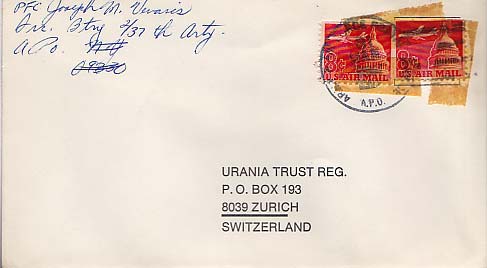 PFC Joseph M. Veraris
Btry 2/37 th Arty.
A.P.O. NY
09330
8¢
U.S. AIR MAIL
8¢
U.S. AIR MAIL
A.P.O.
URANIA TRUST REG.
P. O. BOX 193
8039 ZURICH
SWITZERLAND